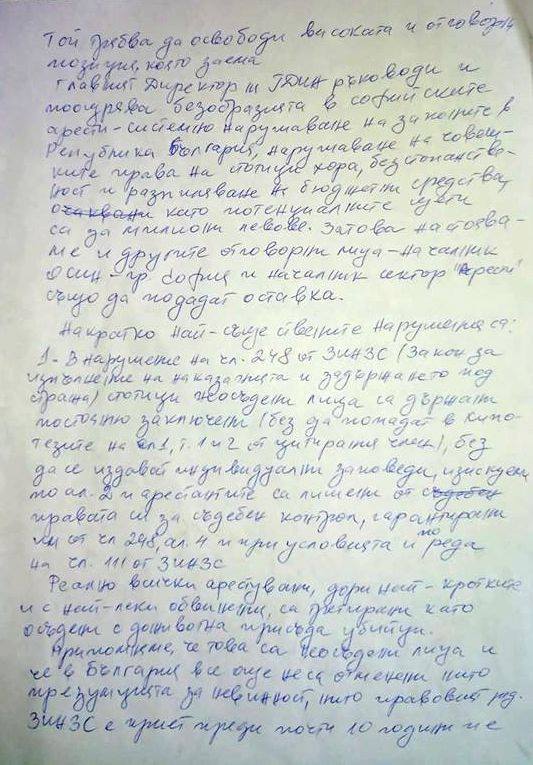 Той трябва да освободи високата и отговорна
позиция, която заема
Главният Директор на ГДИН ръководи и
поощрява безобразията в софийските
арести - системно нарушаване на законите в
Република България, нарушаване на човеш-
ките права на стотици хора, безстопанстве-
ност и разпиляване на бюджетни средства,
като потенциалните щети
са за милиони левове. Затова настоява-
ме и другите отговорни лица - началник
ОСИН - гр. София и началник сектор "Арести"
също да подадат оставка.
Накратко най-съществените нарушения са:
1 - В нарушение на чл. 248 от ЗИНЗС (Закон за
изпълнение на наказанията и задържането под
стража) стотици неосъдени лица са държани
постоянно заключени (без да попадат в хипо-
тезите на ал. 1, т. 1 и 2 от цитирания член), без
да се издават индивидуални заповеди, изискуеми
по ал. 2 и арестантите са лишени от съдебен
правата си за съдебен контрол, гарантирани
им от чл 248, ал. 4 и при условията и по реда
на чл. 111 от ЗИНЗС
Реално всички арестувани, дори най-кротките
и с най-леки обвинения, са третирани като
осъдени с доживотна присъда убийци.
Припомняме, че това са неосъдени лица и
че в България все още не са отменени нито
презумпцията за невинност, нито правовият ред.
ЗИНЗС е приет преди почти 10 години и е